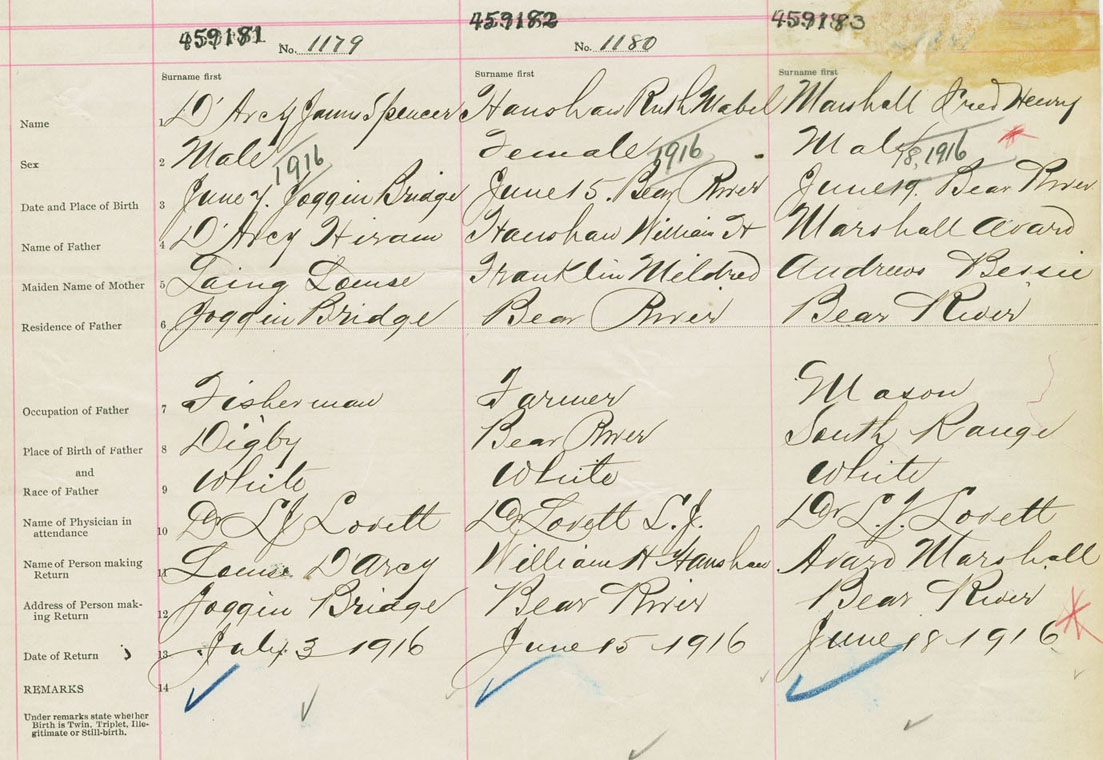 459181 459182 459183
No. 1179 No. 1180
Surname first Surname first Surname first
Name 1 D'Arcy James Spencer Hanshaw Ruth Mabel Marshall Fred Henry
Sex 2 Male Female Male
1916 1916 18, 1916
Date and Place of Birth 3 June 7. Joggin Bridge June 15. Bear River June 19, Bear River
Name of Father 4 D'Arcy Hiram Hanshaw William H Marshall Avard
Maiden Name of Mother 5 Taing Louise Franklin Mildred Andrews Bessie
Residence of Father 6 Joggin Bridge Bear River Bear River
Occupation of Father 7 Fisherman Farmer Mason
Place of Birth of Father 8 Digby Bear River South Range
and
Race of Father 9 White White White
Name of Physician in
attendance 10 Dr L J Lovett Dr Lovett L. J. Dr L. J. Lovett
Name of Person making
Return 11 Louise D'Arcy William H Hanshaw Avard Marshall
Address of Person mak-
ing Return 12 Joggin Bridge Bear River Bear River
Date of Return 13 July 3 1916 June 15 1916 June 18 1916
REMARKS 14
Under remarks state whether
Birth is Twin, Triplet, Ille-
gitimate or Still-birth.